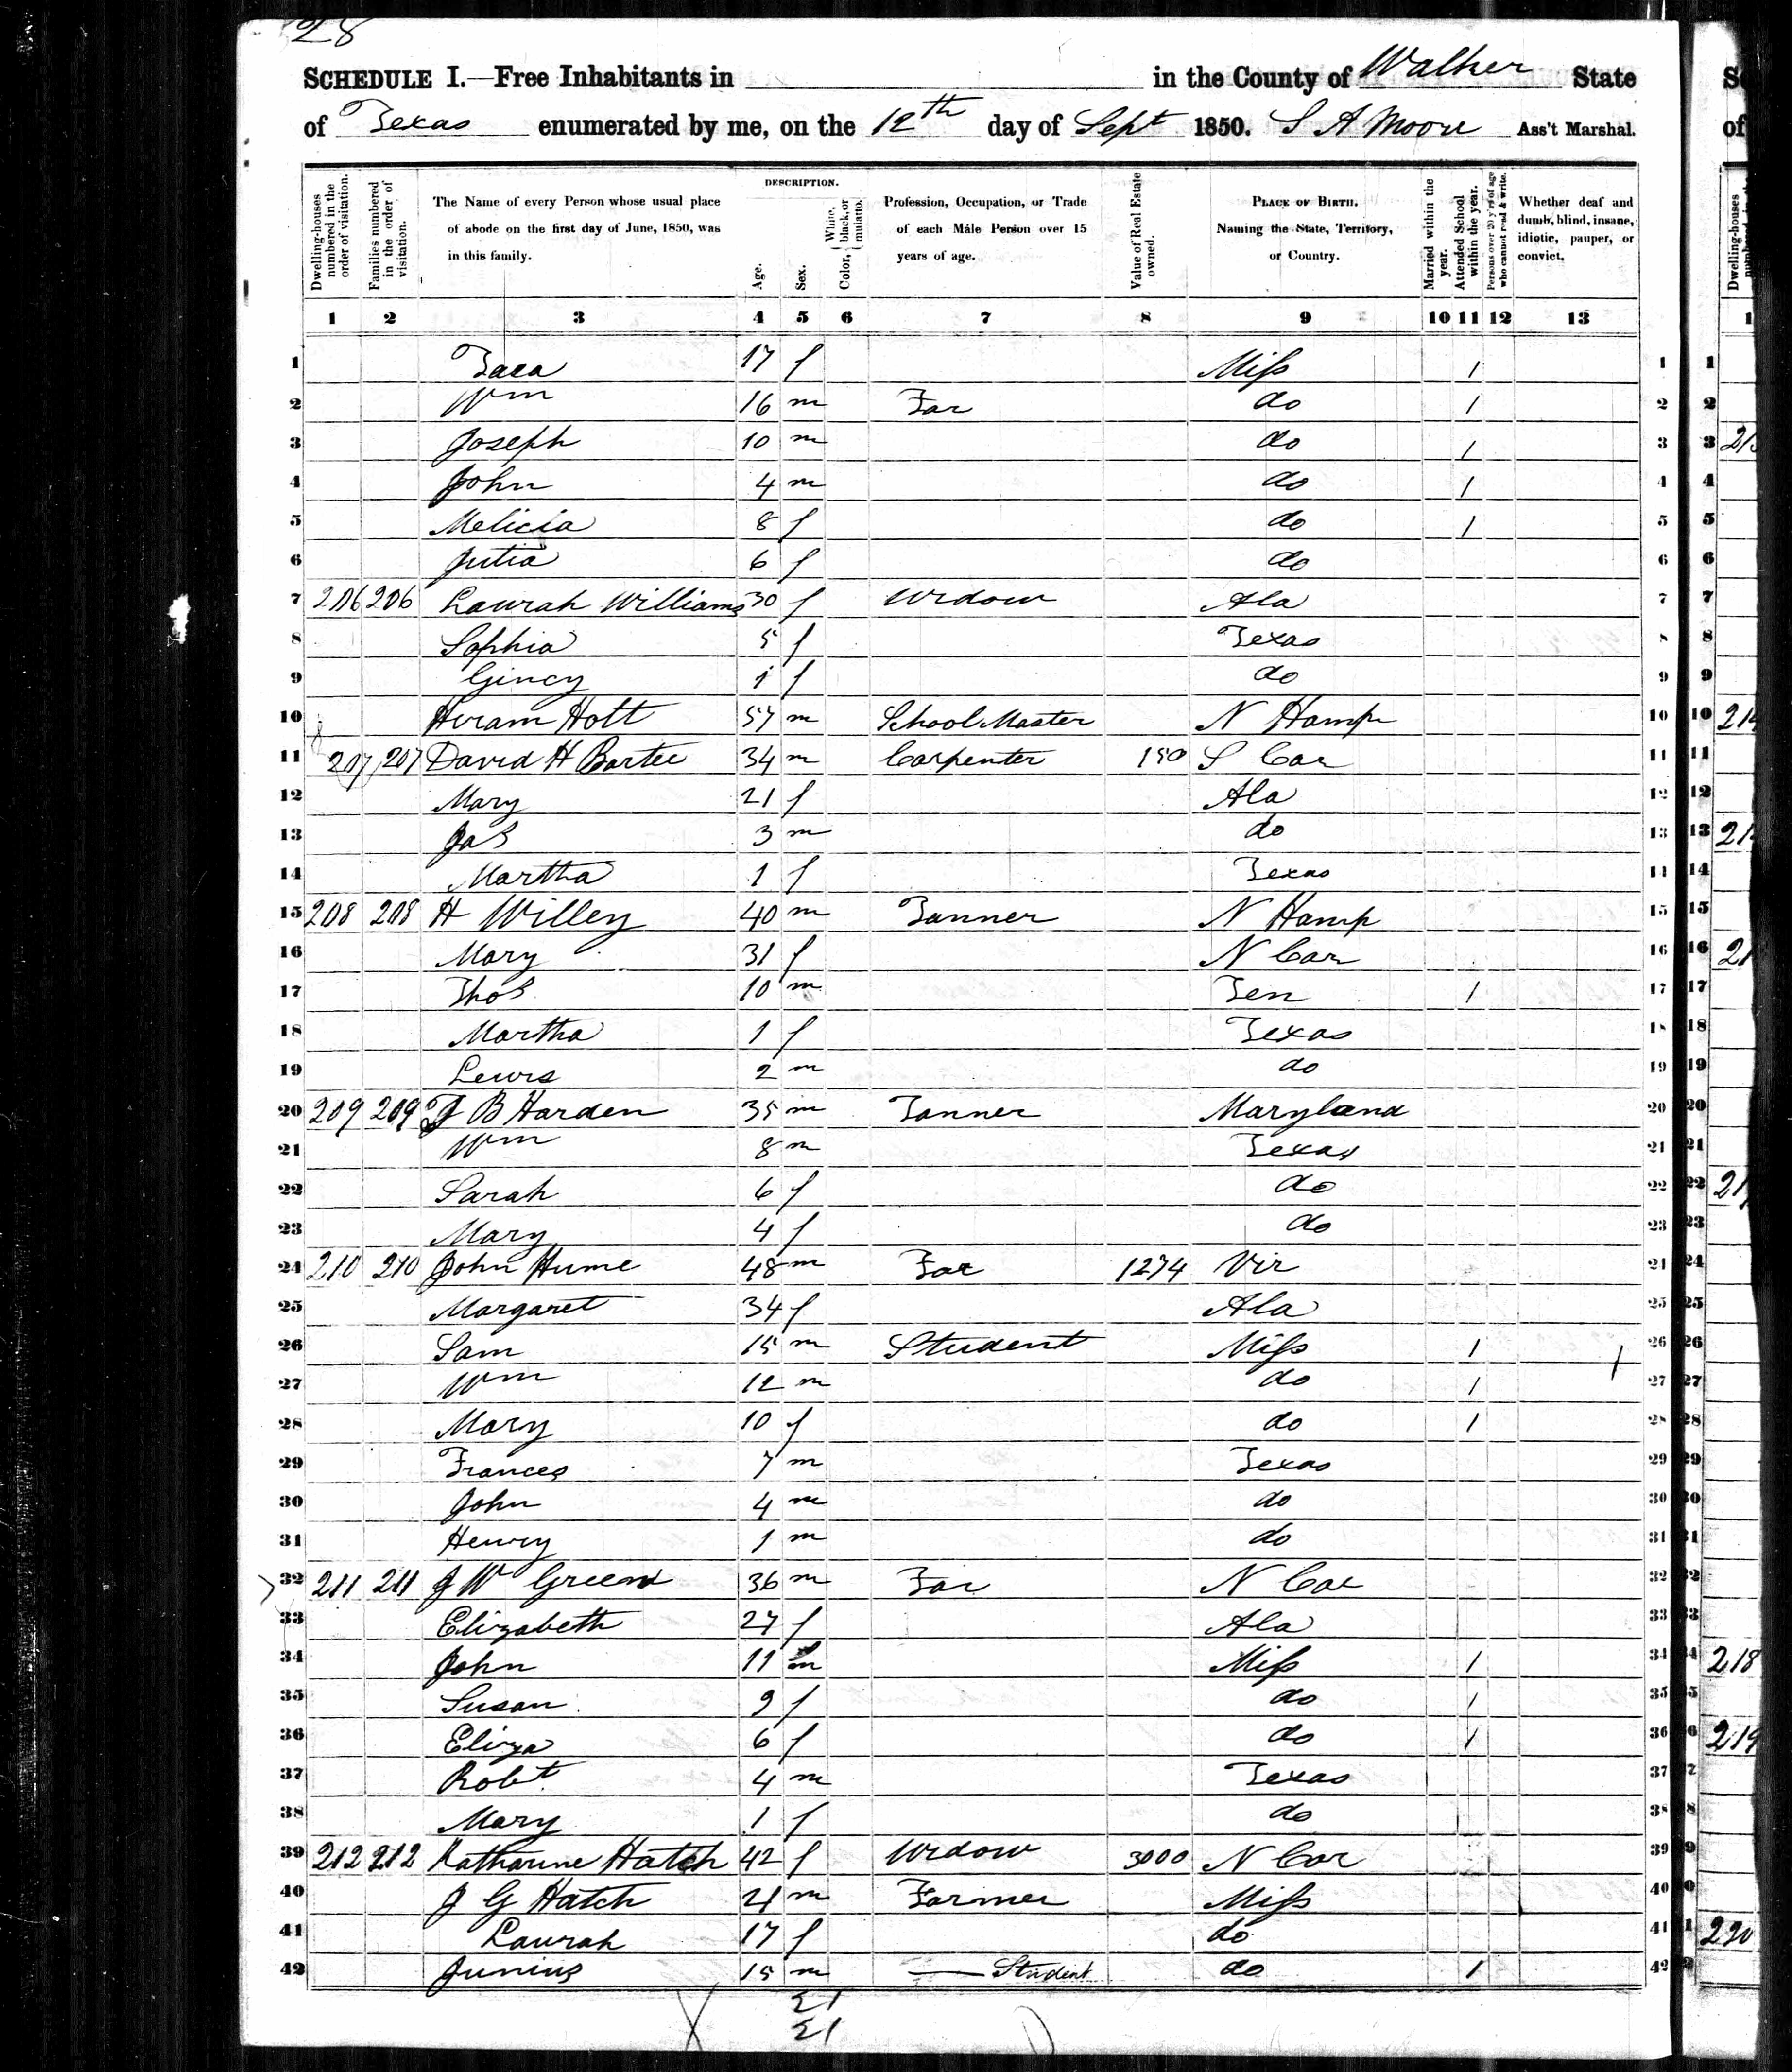 28
SCHEDULE I.—Free Inhabitants in in the County of Walker State
of Texas enumerated by me, on the 12th day of Sept 1850. S A Moore Ass't Marshal.
Dwelling-houses numbered in the order of visitation.
Families numbered in the order of visitation.
The Name of every Person whose usual place of abode on the first day of June, 1850, was in this family.
DESCRIPTION.
Age.
Sex.
Color, White, black, or mulatto.
Profession, Occupation, or Trade of each Male Person over 15 years of age.
Value of Real Estate owned.
PLACE OF BIRTH. Naming the State, Territory, or Country.
Married within the year.
Attended School within the year.
Persons over 20 y'rs of age who cannot read & write.
Whether deaf and dumb, blind, insane, idiotic, pauper, or convict.
1 2 3 4 5 6 7 8 9 10 11 12 13
1 17 f Miss 1 1
2 Wm 16 m Far do 1 2
3 Joseph 10 m do 1 3
4 John 4 m do 1 4
5 Melicia 8 f do 1 5
6 6 f do 6
7 206 206 Laurah Williams 30 f Widow Ala 7
8 Sophia 5 f Texas 8
9 Gincy 1 f do 9
10 Hiram Holt 57 m School Master N Hamp 10
11 207 207 David H Bartee 34 m Carpenter 150 S Car 11
12 Mary 21 f Ala 12
13 JaS 3 m do 13
14 Martha 1 f Texas 14
15 208 208 H Willey 40 m Tanner N Hamp 15
16 Mary 31 f N Car 16
17 ThoS 10 m Ten 1 17
18 Martha 1 f Texas 18
19 Lewis 2 m do 19
20 209 209 J B Harden 35 m Tanner Maryland 20
21 Wm 8 m Texas 21
22 Sarah 6 f do 22
23 Mary 4 f do 23
24 210 210 John Hume 48 m Far 1274 Vir 24
25 Margaret 34 f Ala 25
26 Sam 15 m Student Miss 1 26
27 Wm 12 m do 1 27
28 Mary 10 f do 1 28
29 Frances 7 m Texas 29
30 John 4 m do 30
31 Henry 1 m do 31
32 211 211 J W Green 36 m Far N Car 32
33 Elizabeth 27 f Ala 33
34 John 11 m Miss 1 34
35 Susan 9 f do 1 35
36 Eliza 6 f do 1 36
37 Robt 4 m Texas 37
38 Mary 1 f do 38
39 212 212 Katharine Hatch 42 f Widow 3000 N Car 39
40 J G Hatch 21 m Farmer Miss 40
41 Laurah 17 f do 41
42 Junius 15 m — Student do 1 42
21
21